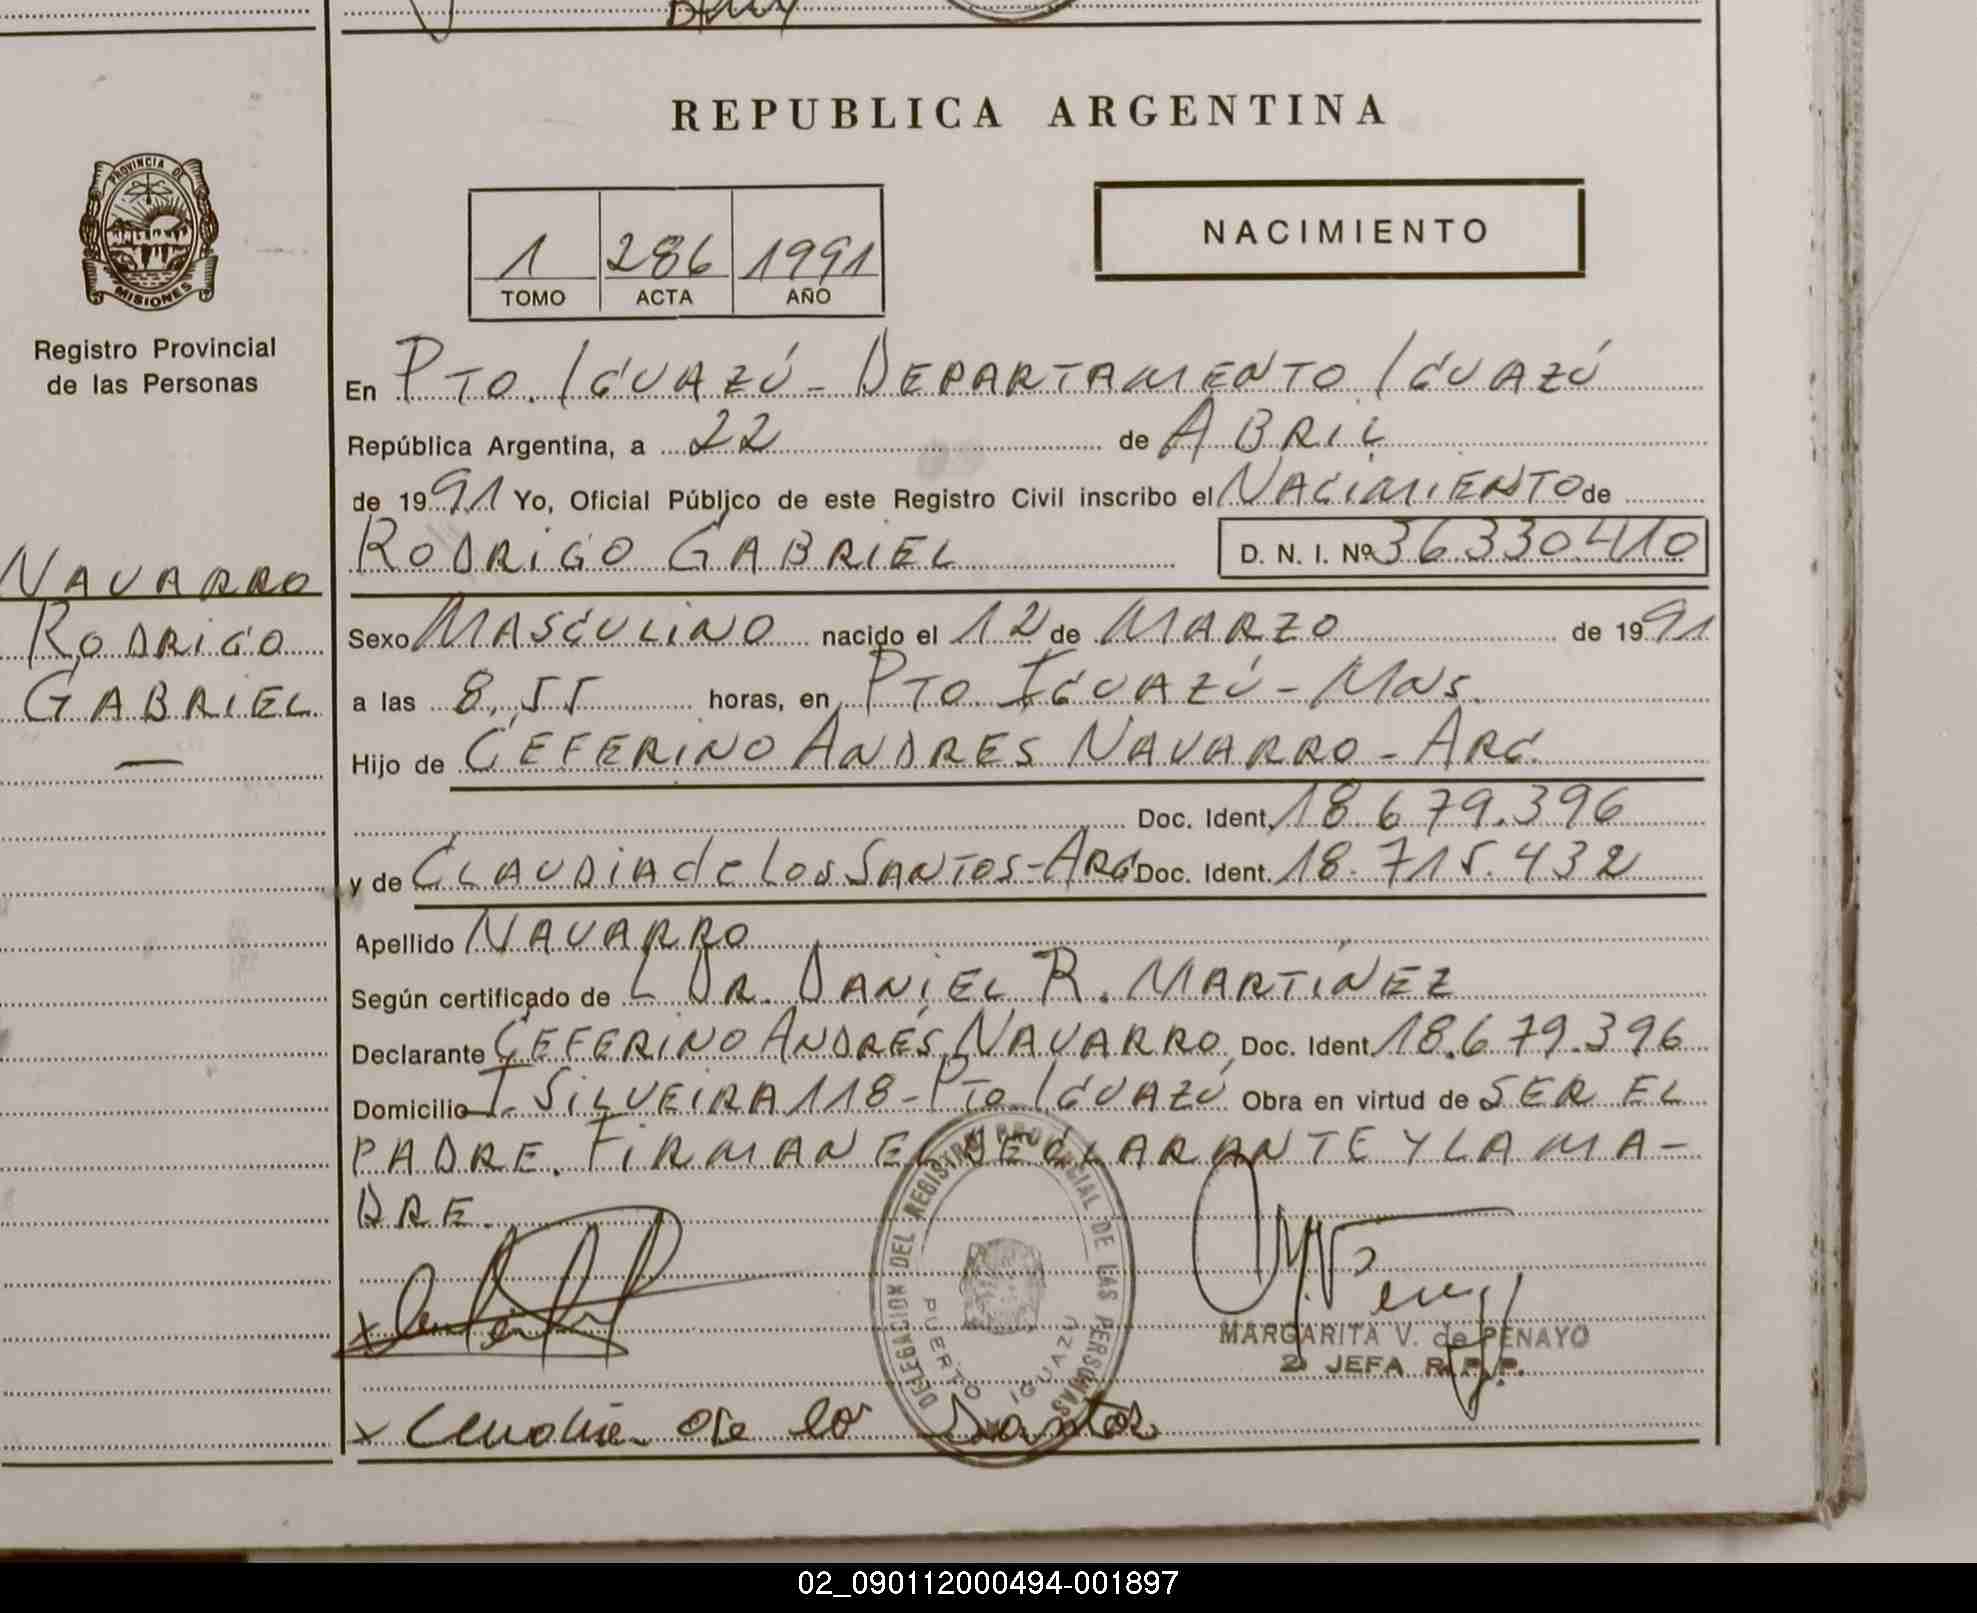 REPUBLICA ARGENTINA
PROVINCIA DE
MISIONES
Registro Provincial
de las Personas
NAVARRO
RODRIGO
GABRIEL
1 286 1991
TOMO ACTA AÑO
NACIMIENTO
En PTO. IGUAZÚ - DEPARTAMENTO IGUAZÚ
República Argentina, a 22 de ABRIL
de 1991 Yo, Oficial Público de este Registro Civil inscribo el NACIMIENTO de
RODRIGO GABRIEL D. N. I. Nº 36330410
Sexo MASCULINO nacido el 12 de MARZO de 1991
a las 8,55 horas, en PTO IGUAZÚ - MNS.
Hijo de CEFERINO ANDRES NAVARRO - ARG.
Doc. Ident. 18.679.396
y de CLAUDIA de los SANTOS - ARG Doc. Ident. 18.715.432
Apellido NAVARRO
Según certificado de L DR. DANIEL R. MARTINEZ
Declarante CEFERINO ANDRÉS NAVARRO, Doc. Ident 18.679.396
Domicilio T. SILVEIRA 118 - PTO IGUAZÚ Obra en virtud de SER EL
PADRE. FIRMAN EL DECLARANTE Y LA MA-
DRE.
DELEGACION DEL REGISTRO PROVINCIAL DE LAS PERSONAS
PUERTO IGUAZU
MARGARITA V. de PENAYO
2ª JEFA R.P.P.
x Claudia de los Santos
02_090112000494-001897